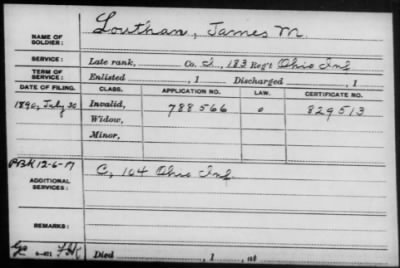 NAME OF SOLDIER: Louthan, James M.
SERVICE: Late rank, Co. I, 183 Reg't Ohio Inf
TERM OF SERVICE: Enlisted , 1 Discharged , 1
DATE OF FILING. CLASS. APPLICATION NO. LAW. CERTIFICATE NO.
1890, July 30 Invalid, 788566 829513
Widow,
Minor,
12-6-17
ADDITIONAL SERVICES: C, 104 Ohio Inf
REMARKS:
Died , 1 , at